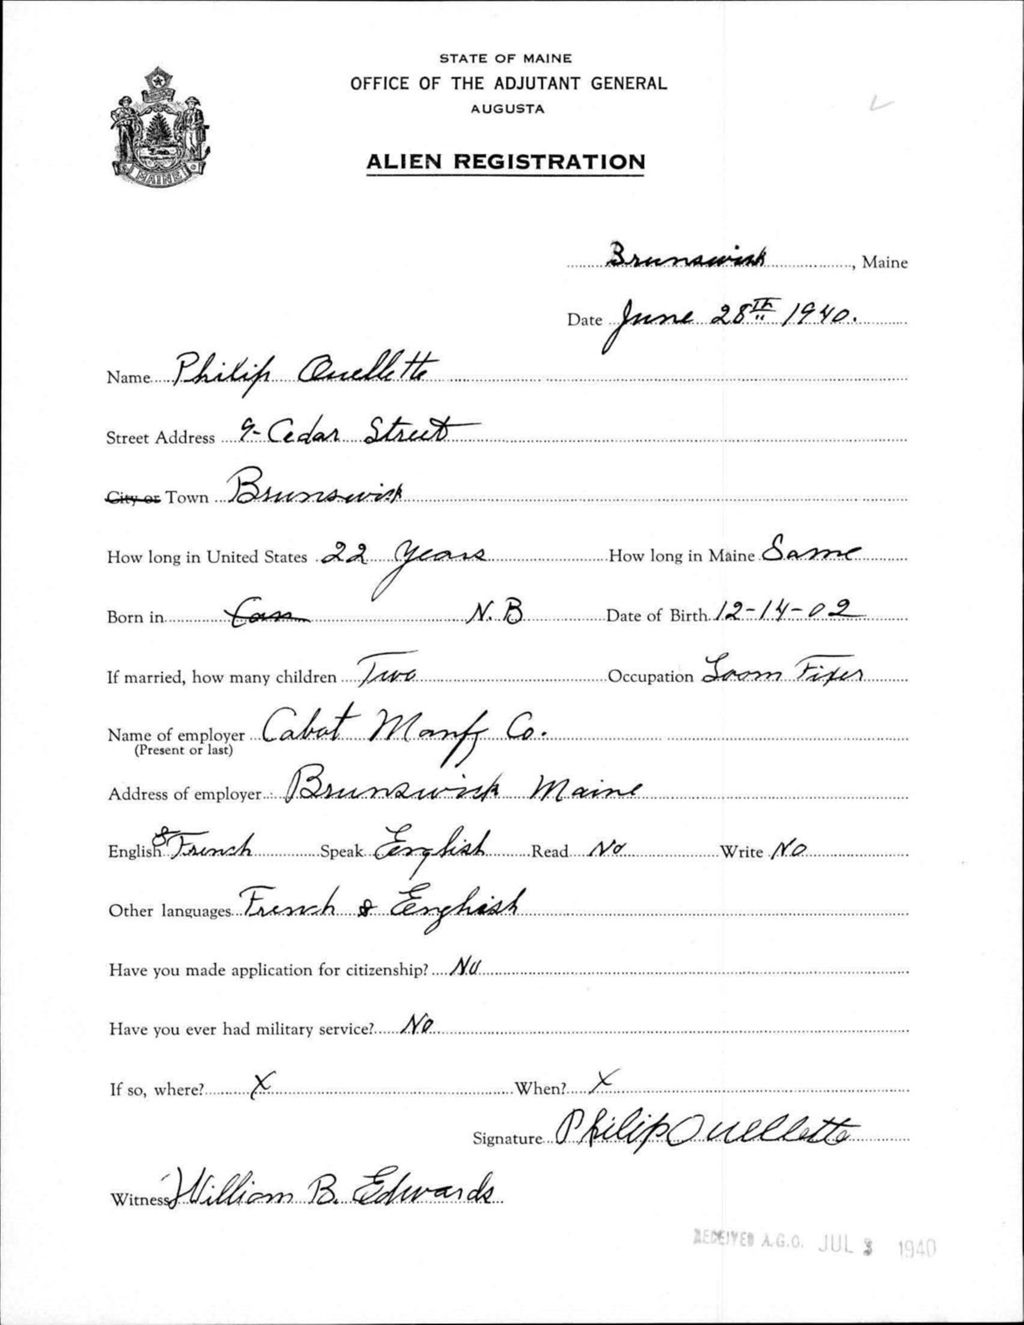 STATE OF MAINE
OFFICE OF THE ADJUTANT GENERAL
AUGUSTA
ALIEN REGISTRATION
MAINE
Brunswick, Maine
Date June 28th 1940.
Name Philip Ouellette
Street Address 9- Cedar Street
City or Town Brunswick
How long in United States 22 Years How long in Maine Same
Born in Can N.B Date of Birth 12-14-02
If married, how many children Two Occupation Loom Fixer
Name of employer Cabot Manf Co.
(Present or last)
Address of employer Brunswick Maine
English & French Speak English Read No Write No
Other languages French & English
Have you made application for citizenship? No
Have you ever had military service? No
If so, where? X When? X
Signature Philip Ouellette
Witness William B. Edwards
RECEIVED A.G.O. JUL 3 1940